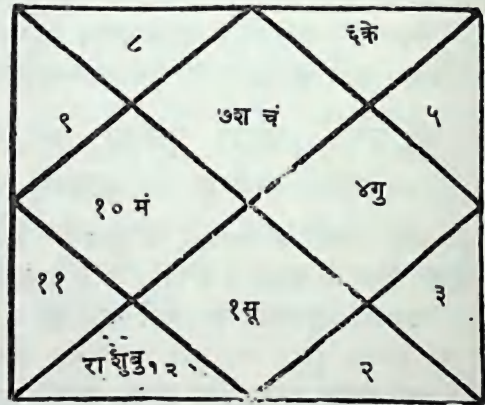 ८
६के
९
७श चं
५
१० मं
४गु
११
१सू
३
रा शुबु१२
२